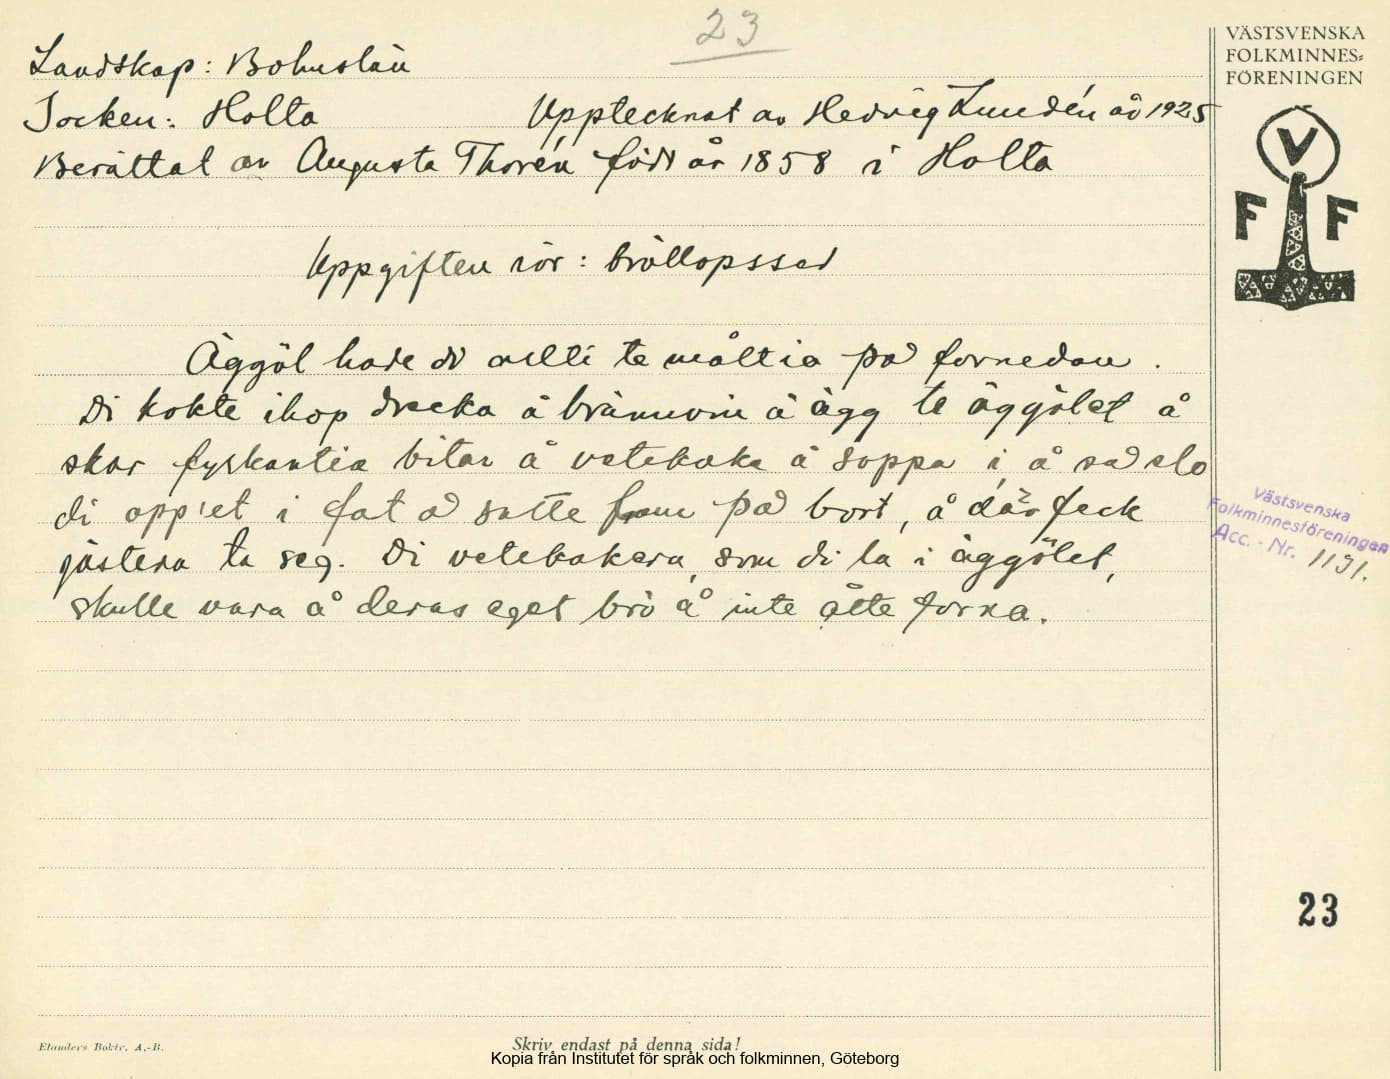 23
Landskap: Bohuslän
Socken: Holta Upptecknat av Hedvig Lundén år 1925
Berättat av Augusta Thorén född år 1858 i Holta
Uppgiften rör: bröllopssed
Äggöl hade di allti te måltia på fornedan.
Di kokte ihop dreeka å brännvin å ägg te äggölet å
skar fyrkantia bitar å vetekaka å soppa i å sad slo
di opp'et i fat å satte fram på bort, å där feck
jästera ta seg. Di vetekakera, som di la i äggölet,
skulle vara å deras eget brö å inte åtte forna.
VÄSTSVENSKA
FOLKMINNES=
FÖRENINGEN
V
F F
Västsvenska
Folkminnesföreningen
Acc. - Nr. 1131.
23
Elanders Boktr. A.-B.
Skriv endast på denna sida!
Kopia från Institutet för språk och folkminnen, Göteborg